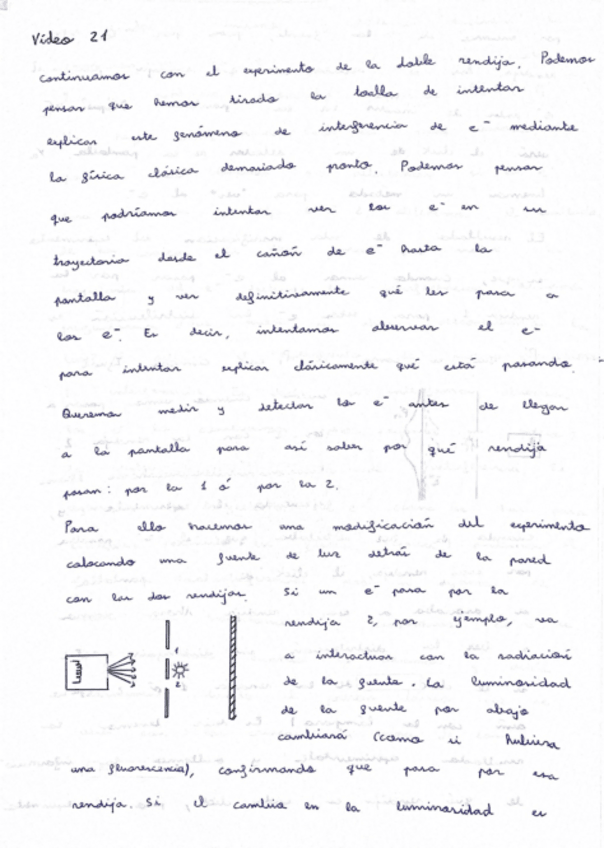 Vídeo 21
continuamos con el experimento de la doble rendija. Podemos
pensar que hemos tirado la toalla de intentar
explicar este fenómeno de interferencia de e⁻ mediante
la física clásica demasiado pronto. Podemos pensar
que podríamos intentar ver los e⁻ en su
trayectoria desde el cañón de e⁻ hasta la
pantalla y ver definitivamente qué les pasa a
los e⁻. Es decir, intentamos observar el e⁻
para intentar explicar clásicamente qué está pasando.
Queremos medir y detectar los e⁻ antes de llegar
a la pantalla para así saber por qué rendija
pasan: por la 1 ó por la 2.
Para ello hacemos una modificación del experimento
colocando una fuente de luz detrás de la pared
con las dos rendijas. Si un e⁻ pasa por la
rendija 2, por ejemplo, va
a interactuar con la radiación
de la fuente. La luminosidad
de la fuente por abajo
cambiará (como si hubiera
1
2
una fluorescencia), confirmando que pasa por esa
rendija. Si el cambia en la luminosidad es